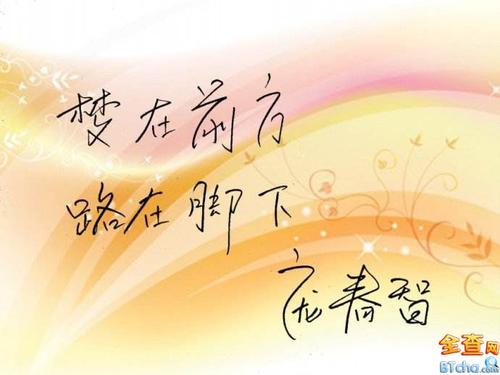 梦在前方
路在脚下
庞春智
全查网
BTcha.com